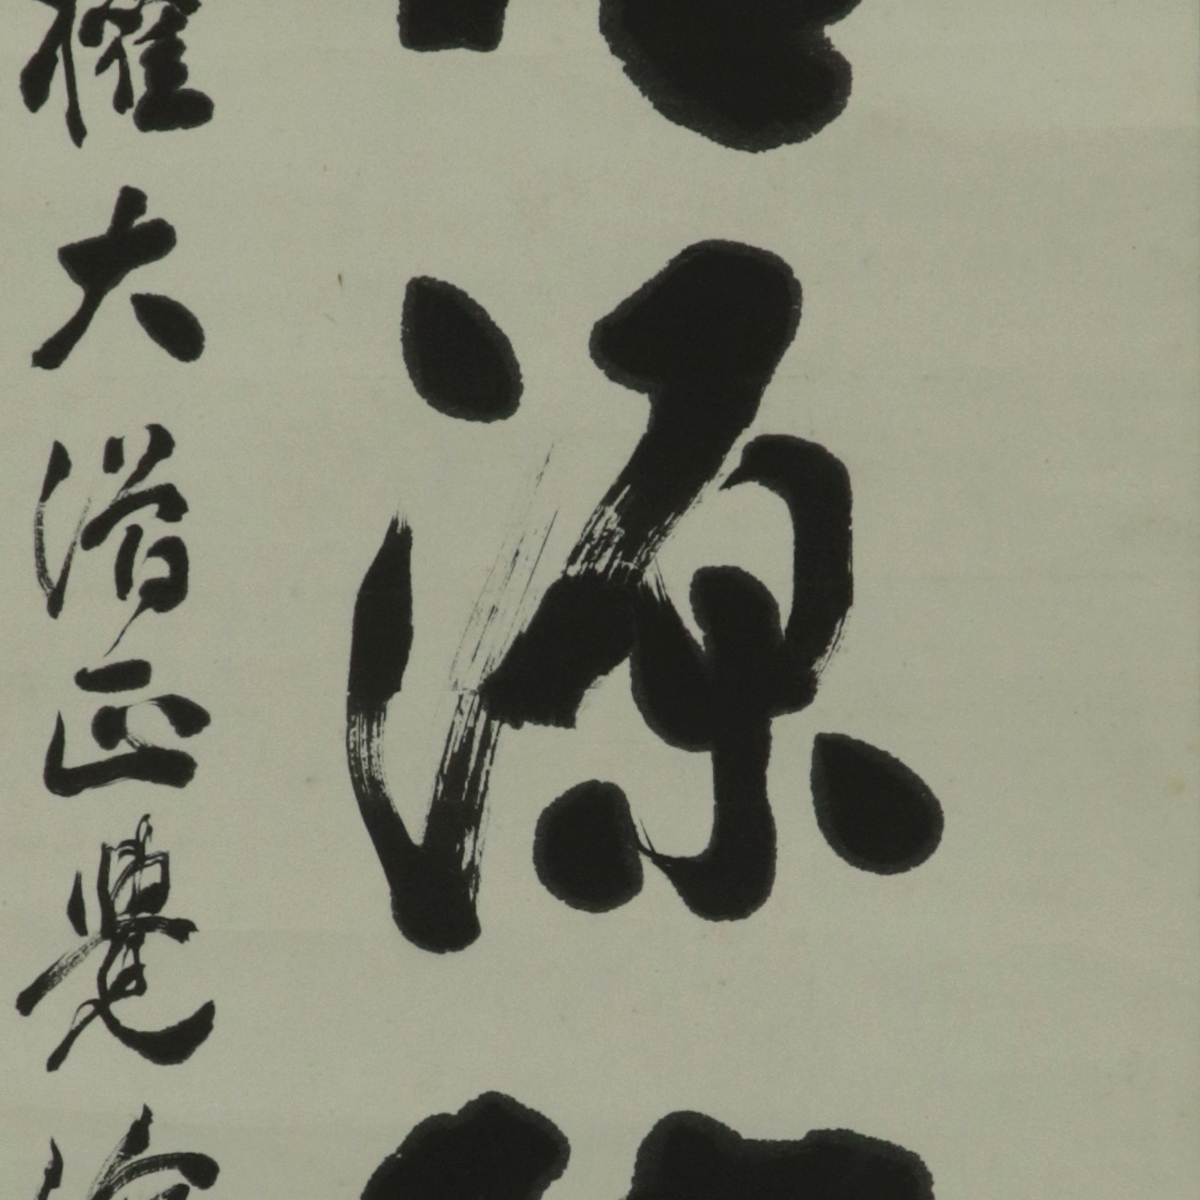 源
權大僧正覺